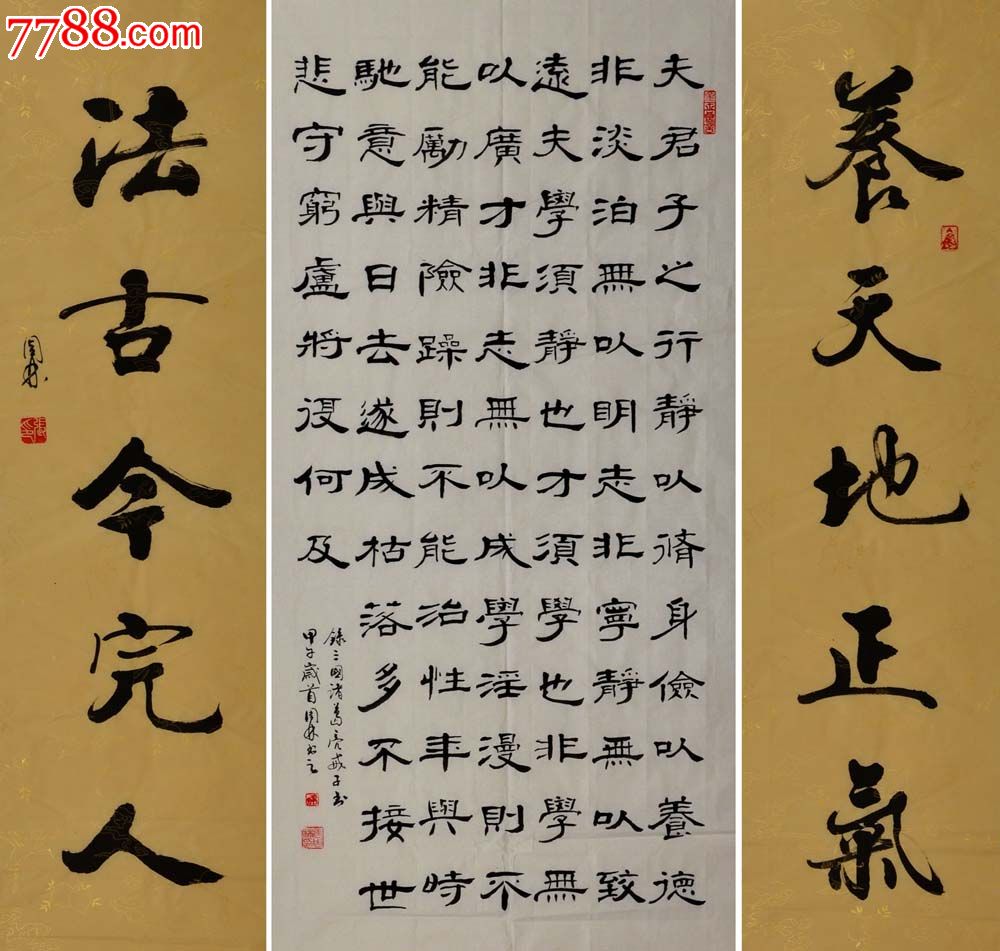 7788.com
養天地正氣
夫君子之行靜以脩身儉以養德
非淡泊無以明志非寧靜無以致
遠夫學須靜也才須學也非學無
以廣才非志無以成學淫漫則不
能勵精險躁則不能治性年與時
馳意與日去遂成枯落多不接世
悲守窮盧將復何及
錄三國諸葛亮戒子書
甲午歲首
法古今完人